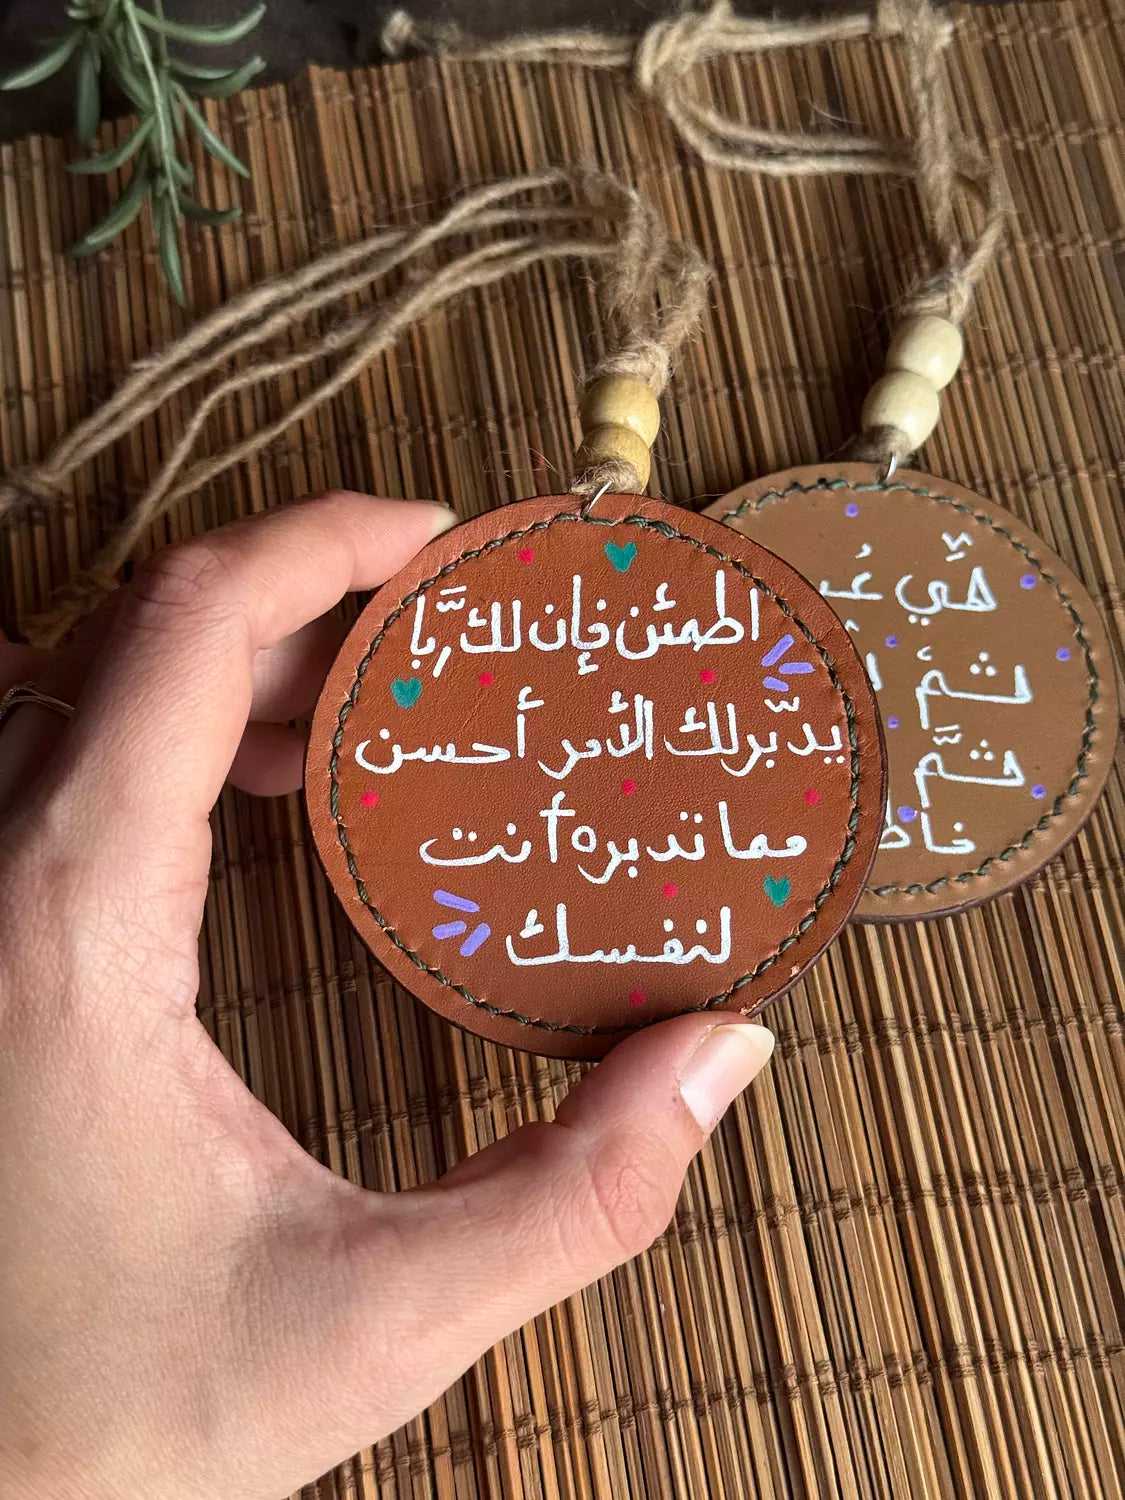 اطمئن فإن لك ربَّاً
يدبّر لك الأمر أحسن
مما تدبره أنت
لنفسك
هِّي
ثمَّ
ثمَّ